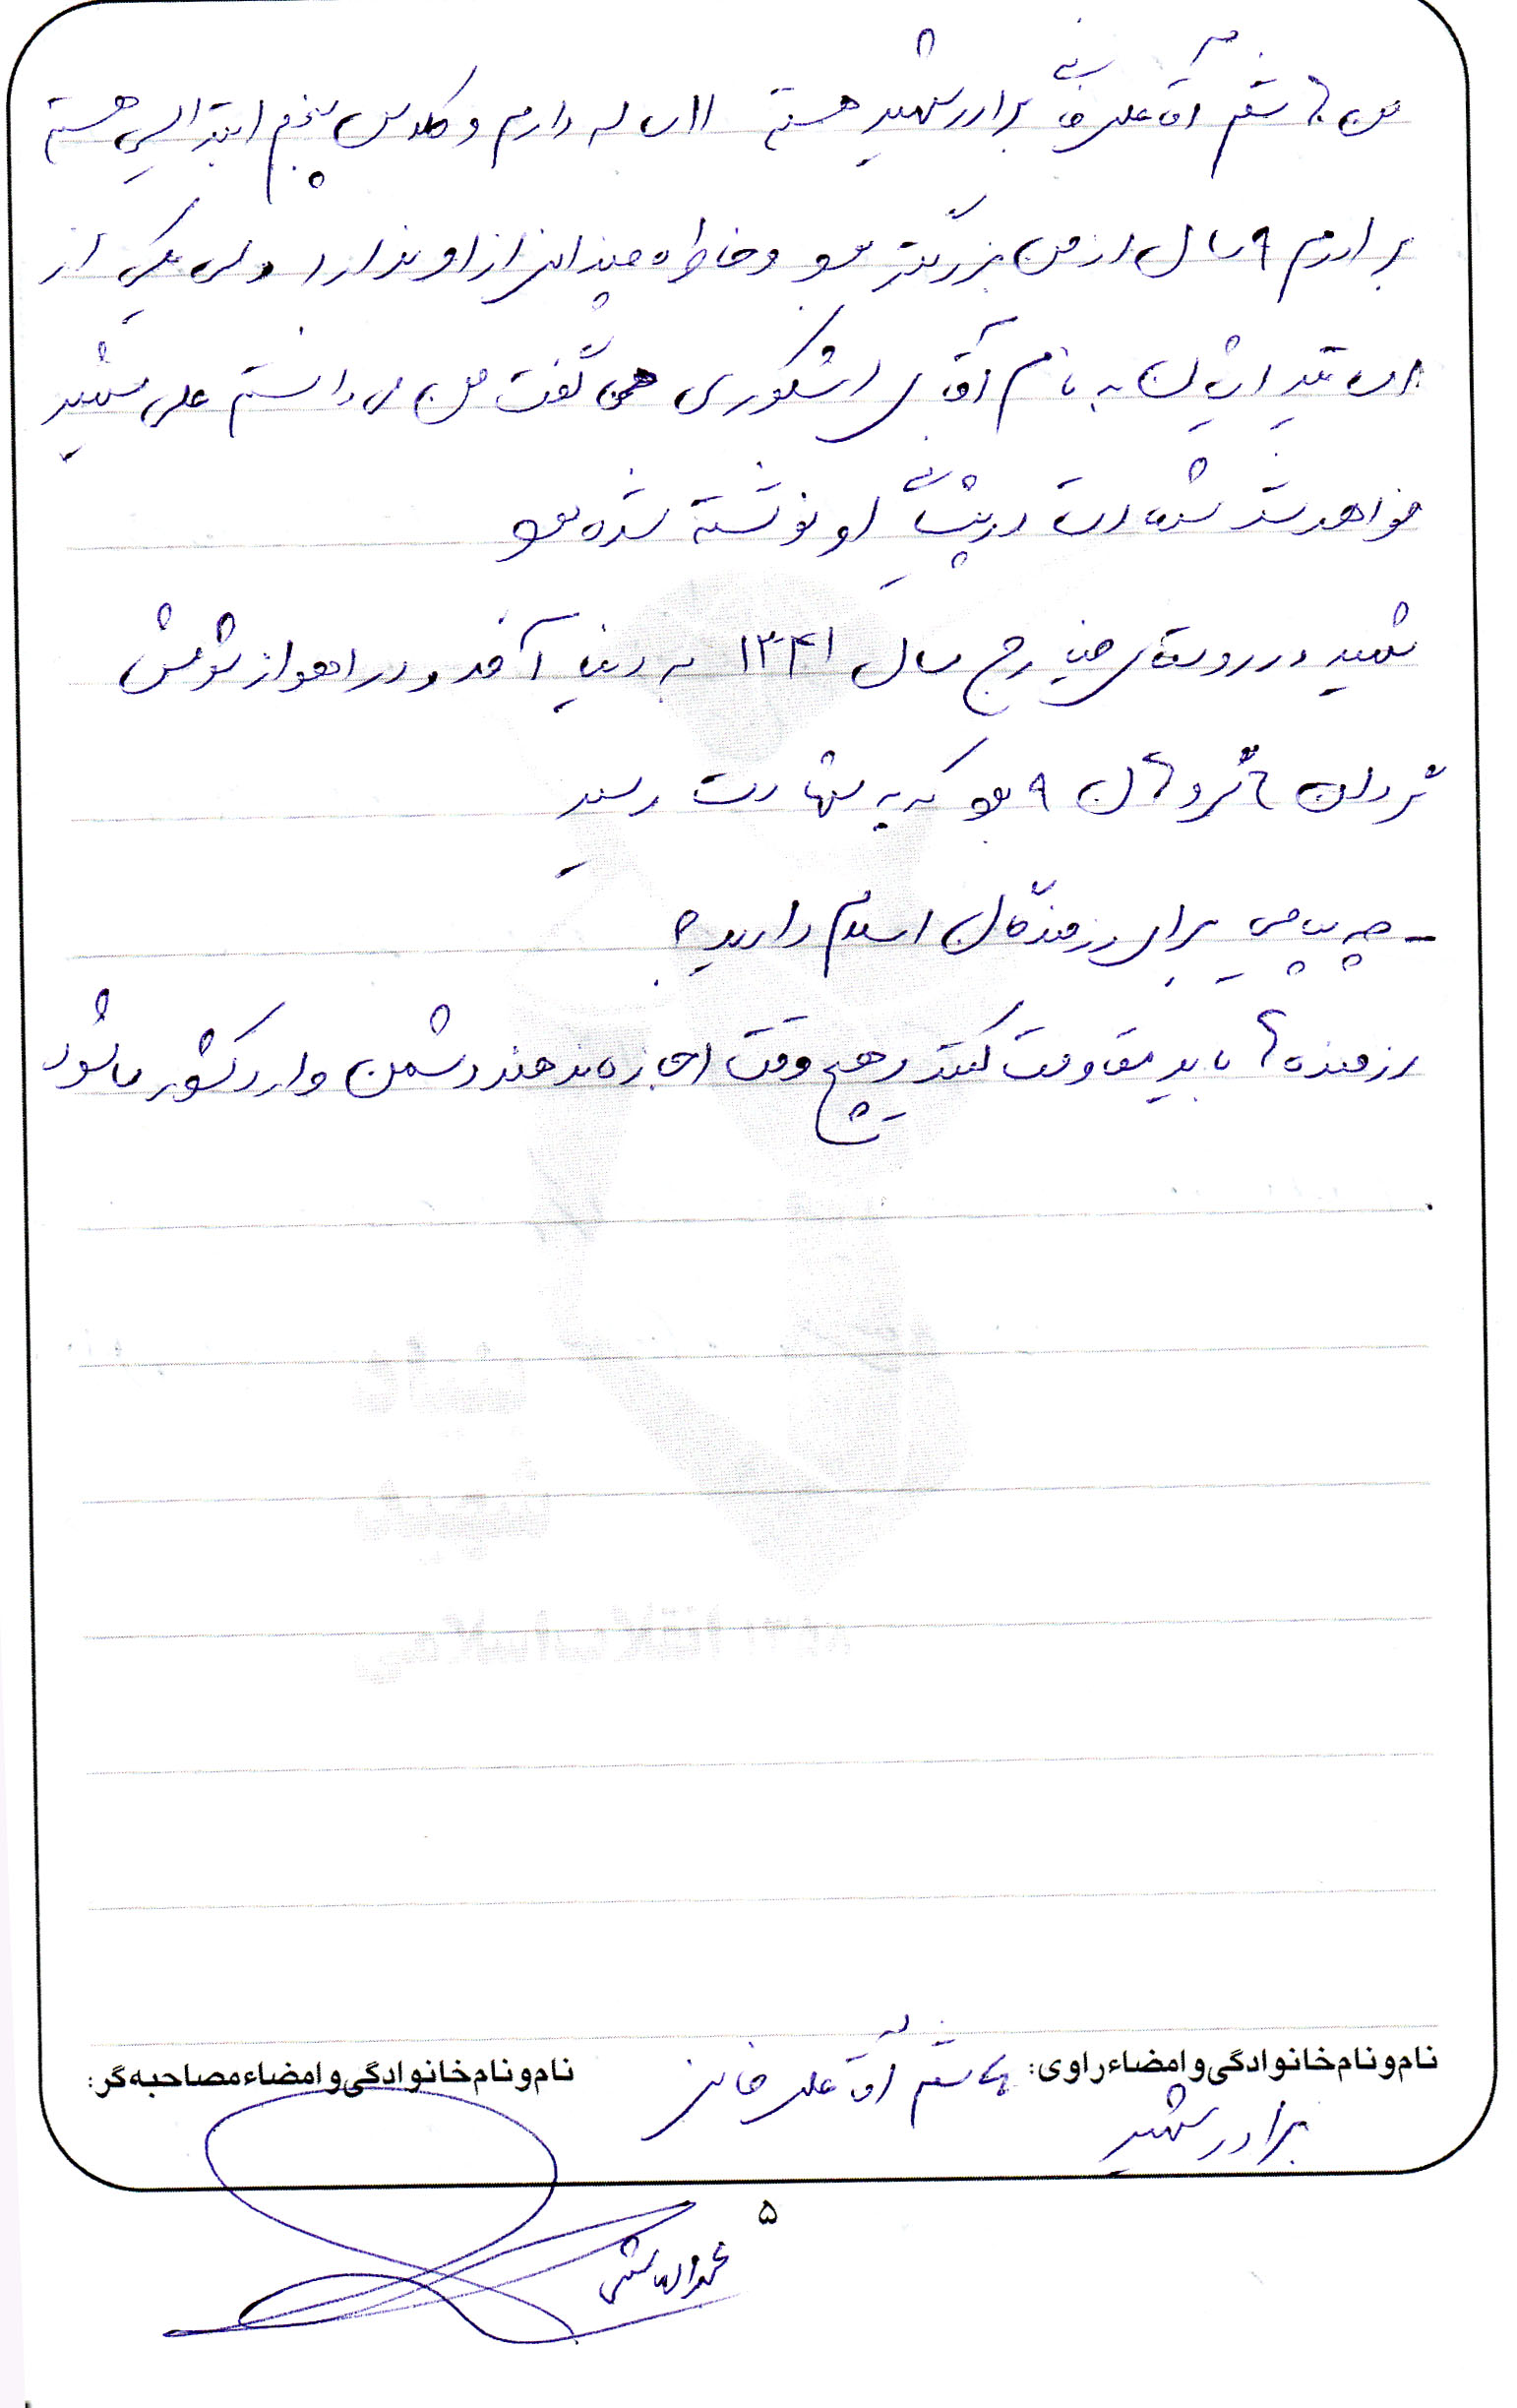 من هاشم آقاعلیخانی برادر شهید هستم ۱۱ ساله دارم و کلاس پنجم ابتدایی هستم
برادرم ۹ سال از من بزرگتر بود و خاطره چندانی از او ندارم ولی یکی از
اساتید ایشان به نام آقای اشکوری می گفت من می دانستم علی شهید
خواهد شد شهادت در پیشانی او نوشته شده بود
شهید در روستای رج سال ۱۳۴۱ به دنیا آمد و در اهواز
گردان ۹ بود که به شهادت رسید
- چه پیامی برای رزمندگان اسلام دارید؟
رزمنده ها باید مقاومت کنند و هیچ وقت اجازه ندهند دشمن وارد کشور ما شود
.
بنیاد
شهید
انقلاب اسلامی
نام و نام خانوادگی و امضاء راوی: هاشم آقاعلیخانی
برادر شهید
نام و نام خانوادگی و امضاء مصاحبه گر:
۵